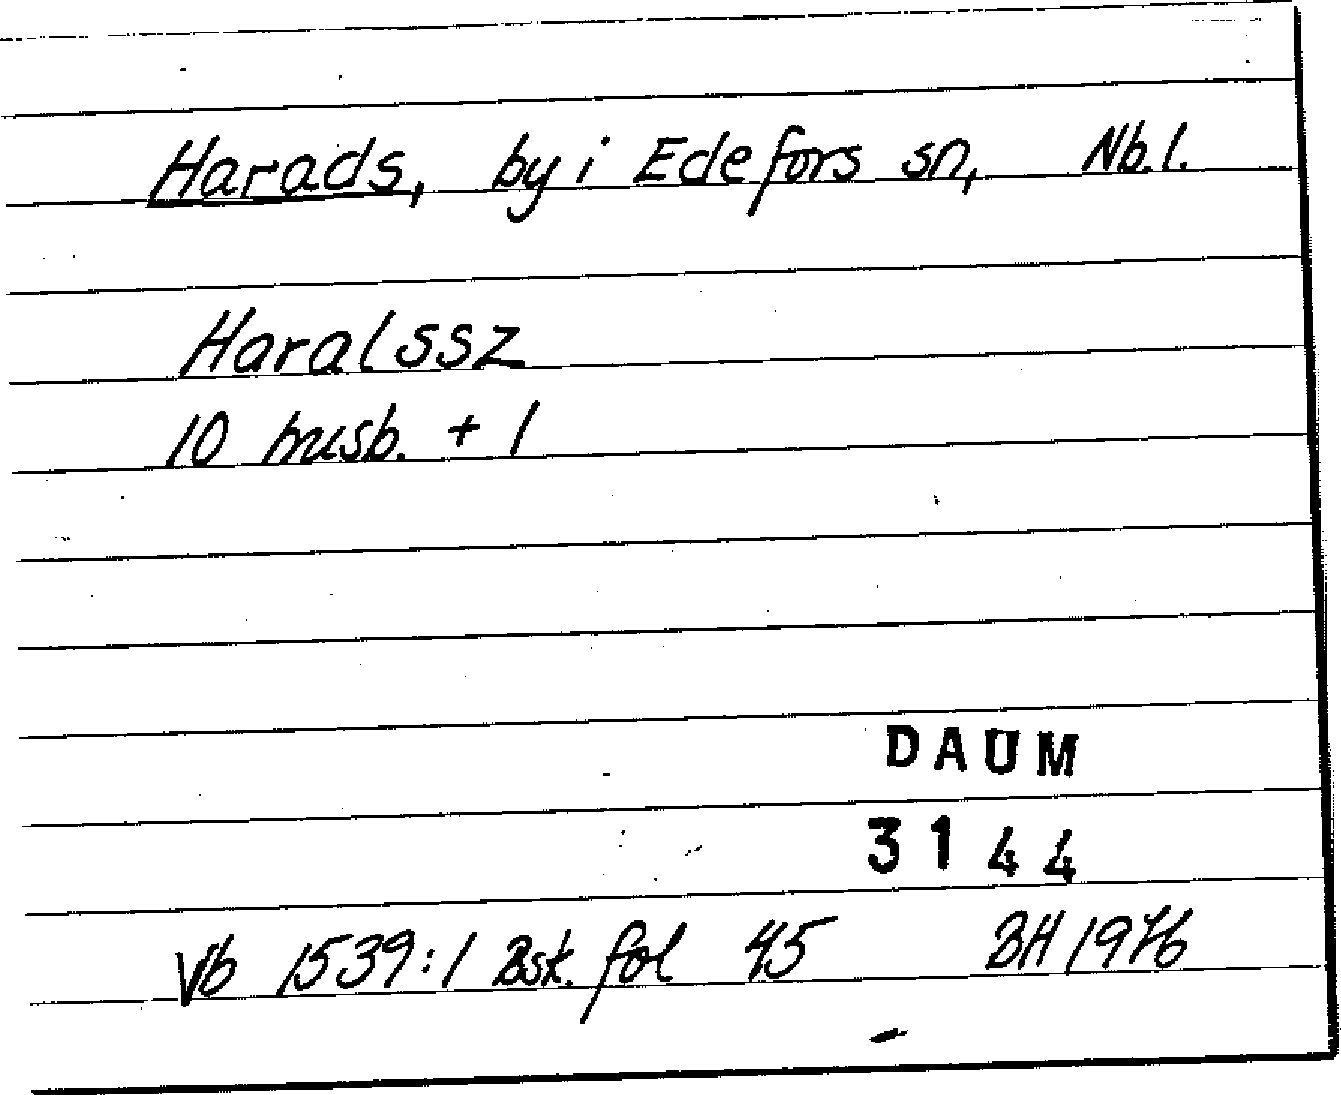 Harads, by i Edefors sn, Nb.l.
Haralssz
10 husb. + 1
DAUM
3144
Vb 1539:1 Bsk. fol 45 BH 1976